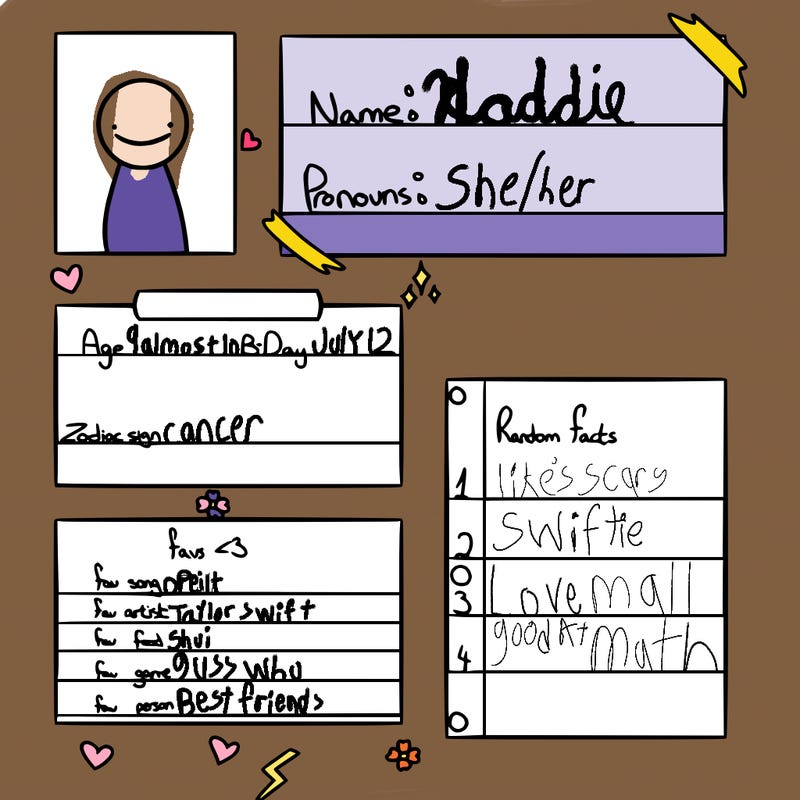 Name: Haddie
Pronouns: She/her
Age 9 almost 10 B-Day JULY 12
Zodiac sign cancer
favs <3
fav song OPeilt
fav artist Taylor swift
fav food Shui
fav game guss who
fav person Best friends
Random facts
1 like's scary
2 Swiftie
3 Love mall
4 good At Math